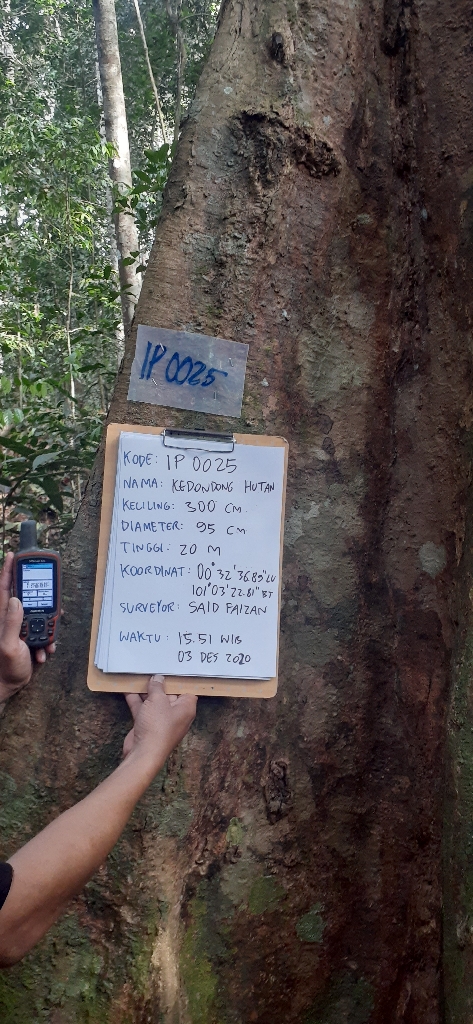 IP 0025
KODE: IP 0025
NAMA: KEDONDONG HUTAN
KELILING: 300 CM
DIAMETER: 95 CM
TINGGI: 20 M
KOORDINAT: 00°32'36.85"LU
101°03'22.81"BT
SURVEYOR: SAID FAIZAN
WAKTU: 15.51 WIB
03 DES 2020